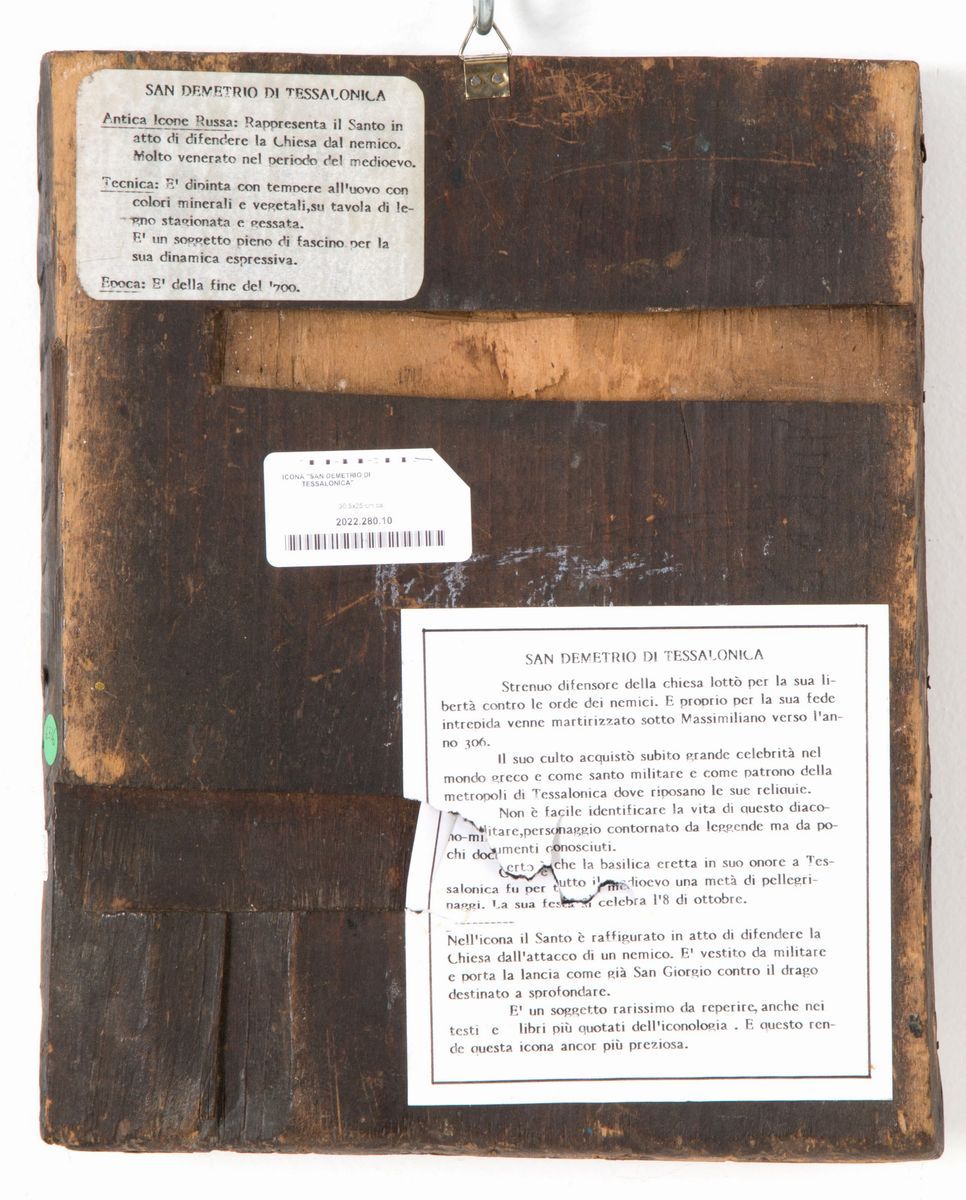 SAN DEMETRIO DI TESSALONICA
Antica Icone Russa: Rappresenta il Santo in
atto di difendere la Chiesa dal nemico.
Molto venerato nel periodo del medioevo.
Tecnica: E' dipinta con tempere all'uovo con
colori minerali e vegetali,su tavola di le-
gno stagionata e gessata.
E' un soggetto pieno di fascino per la
sua dinamica espressiva.
Epoca: E' della fine del '700.
ICONA "SAN DEMETRIO DI
TESSALONICA"
30.5x25 cm ca
2022.280.10
SAN DEMETRIO DI TESSALONICA
Strenuo difensore della chiesa lottò per la sua li-
bertà contro le orde dei nemici. E proprio per la sua fede
intrepida venne martirizzato sotto Massimiliano verso l'an-
no 306.
Il suo culto acquistò subito grande celebrità nel
mondo greco e come santo militare e come patrono della
metropoli di Tessalonica dove riposano le sue reliquie.
Non è facile identificare la vita di questo diaco-
no-militare,personaggio contornato da leggende ma da po-
chi documenti conosciuti.
Certo è che la basilica eretta in suo onore a Tes-
salonica fu per tutto il medioevo una metà di pellegri-
naggi. La sua festa si celebra l'8 di ottobre.
Nell'icona il Santo è raffigurato in atto di difendere la
Chiesa dall'attacco di un nemico. E' vestito da militare
e porta la lancia come già San Giorgio contro il drago
destinato a sprofondare.
E' un soggetto rarissimo da reperire, anche nei
testi e libri più quotati dell'iconologia . E questo ren-
de questa icona ancor più preziosa.